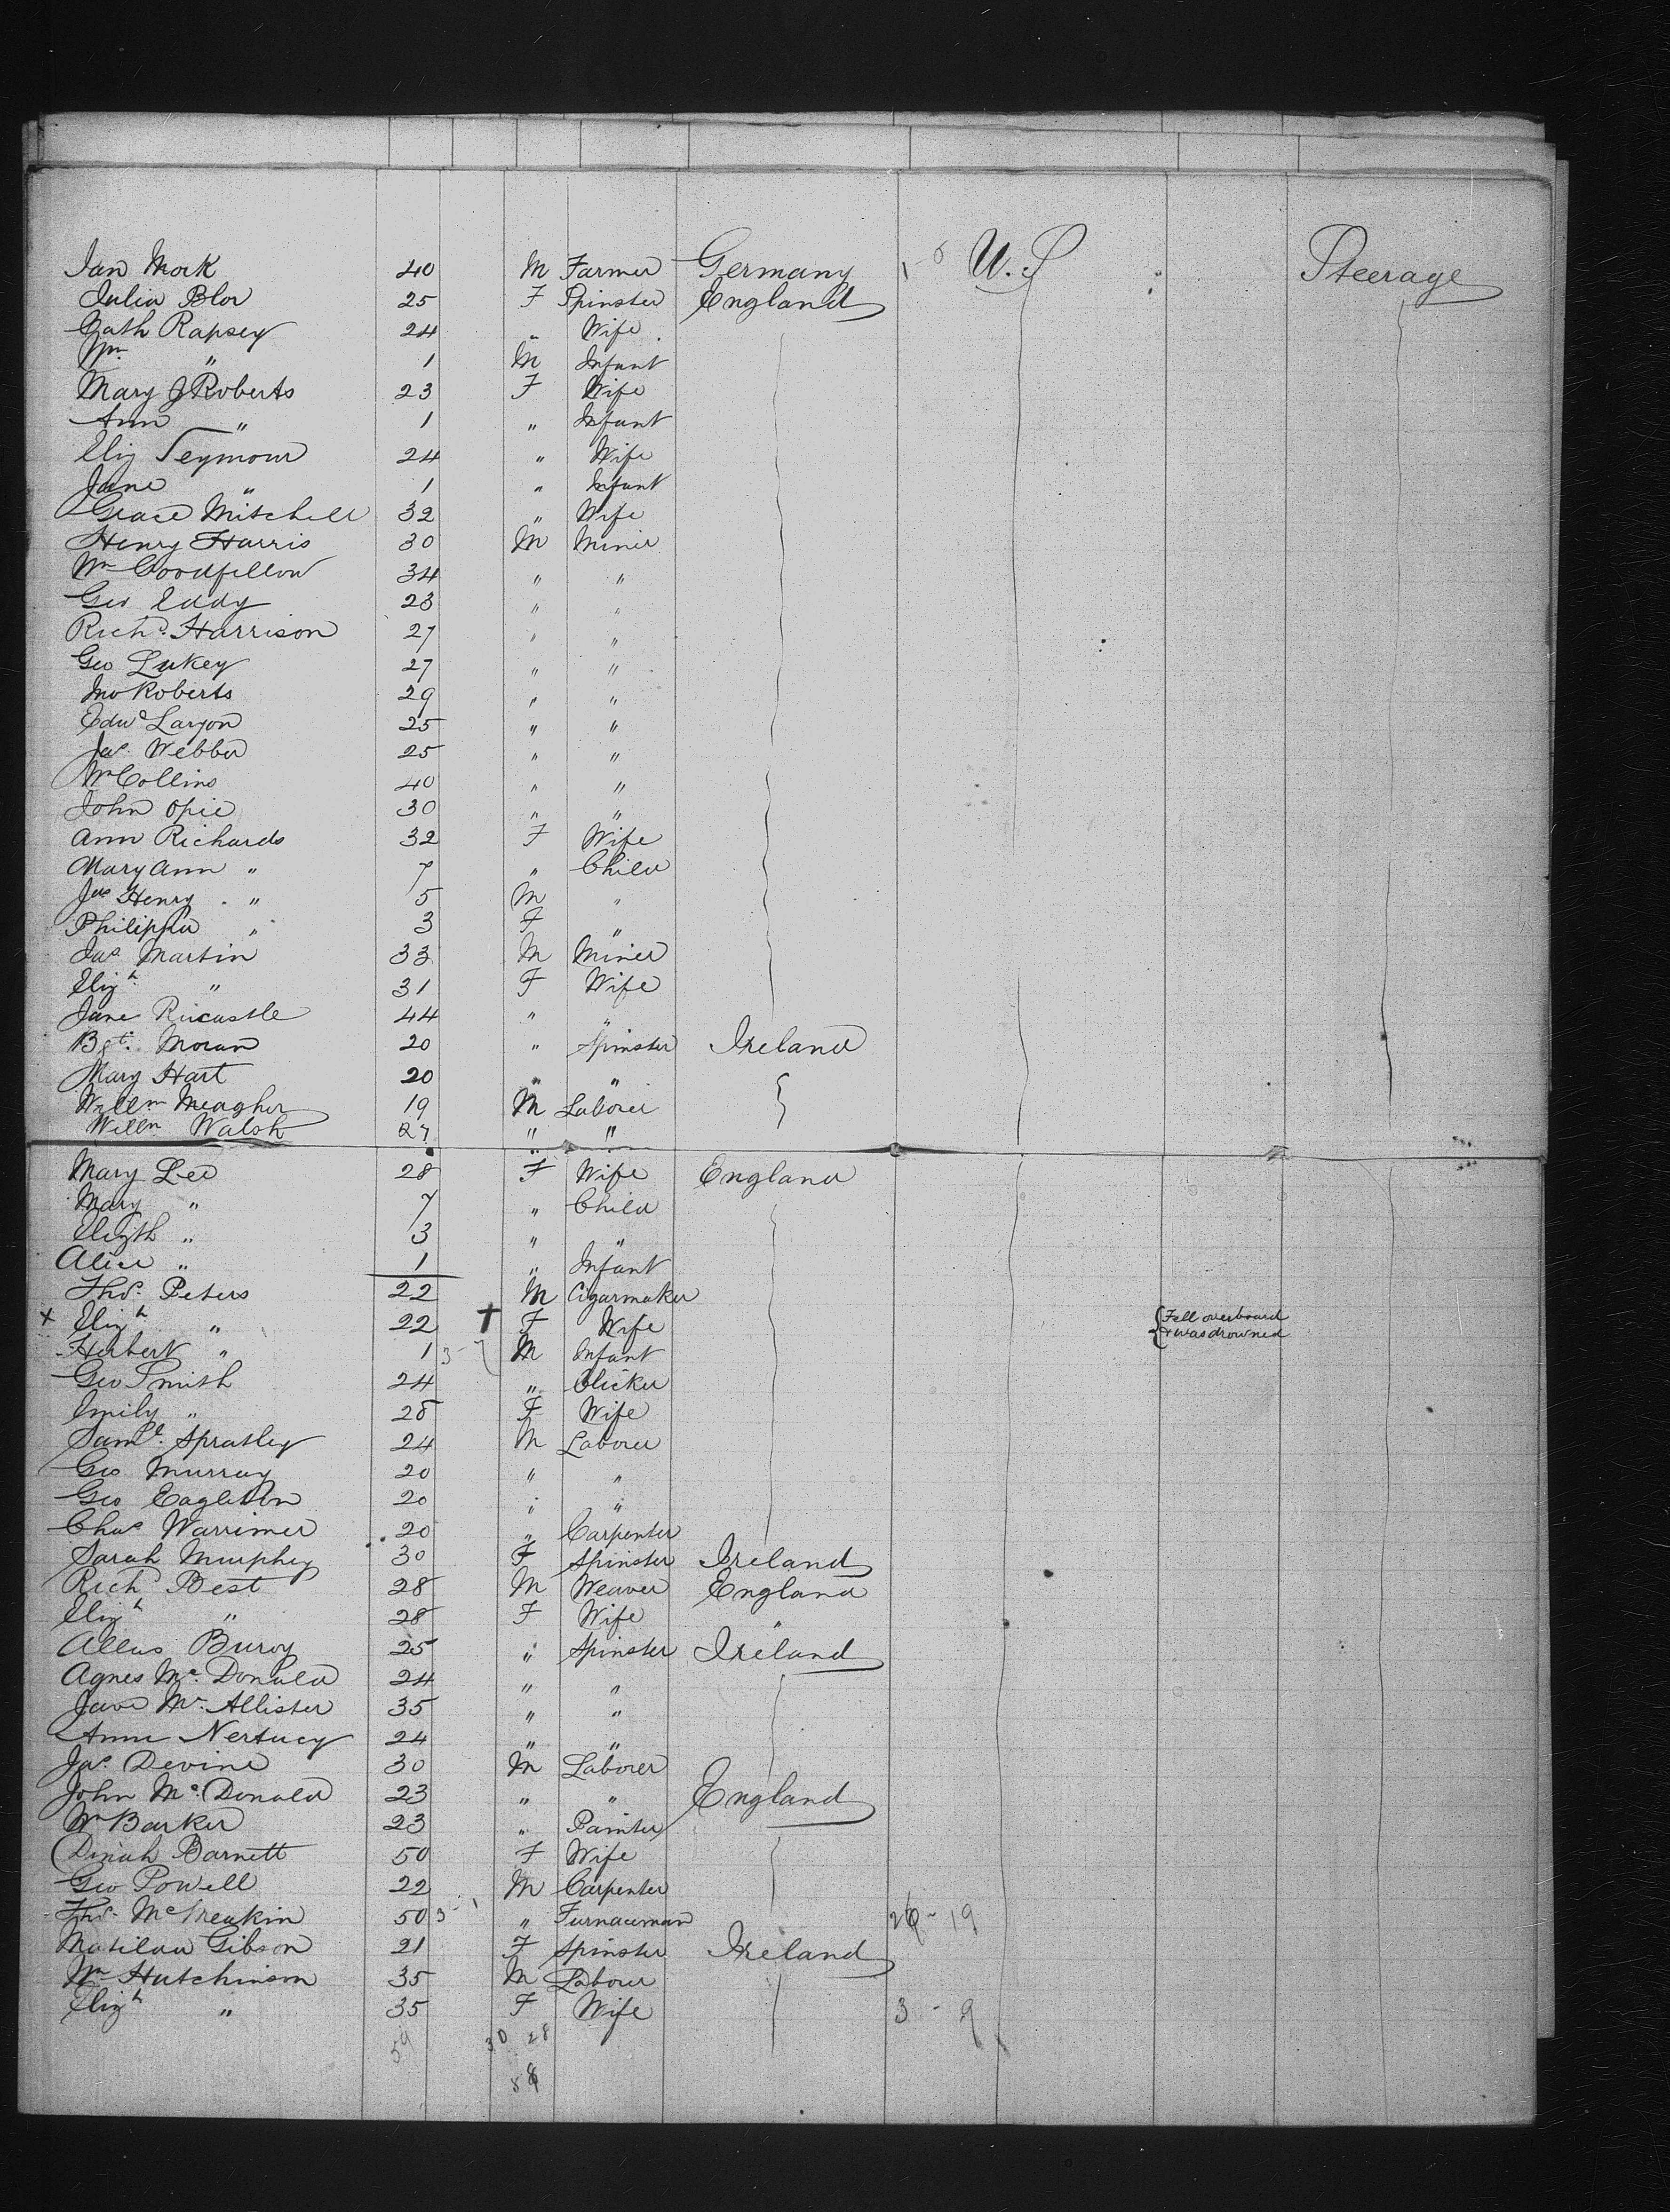 Jan Mork 40 M Farmer Germany 1-0 U.S Steerage
Julia Blor 25 F Spinster England
Cath Rapsey 24 " Wife
Wm " 1 M Infant
Mary J Roberts 23 F Wife
Ann " 1 " Infant
Eliz Seymour 24 " Wife
Jane " 1 " Infant
Grace Mitchell 32 " Wife
Henry Harris 30 M Miner
Wm Goodfellow 34 " "
Geo Eddy 23 " "
Richd. Harrison 27 " "
Geo Lukey 27 " "
Jno Roberts 29 " "
Edwd Laryon 25 " "
Jas. Webber 25 " "
Wm Collins 40 " "
John Opie 30 " "
Ann Richards 32 F Wife
Mary Ann " 7 " Child
Jas Henry " 5 M "
Philippa " 3 F "
Jas Martin 33 M Miner
Elizh " 31 F Wife
Jane Rucastle 44 " "
Bgt. Moran 20 " Spinster Ireland
Mary Hart 20 " "
Willm Meagher 19 M Laborer
Willm Walsh 27 " "
Mary Lee 28 F Wife England
Mary " 7 " Child
Elizth " 3 " "
Alice " 1 " Infant
Thos. Peters 22 M Cigarmaker
x Elizh " 22 + F Wife Fell overboard
& was drowned
Herbert " 1 3- M Infant
Geo Smith 24 " Clicker
Emily " 28 F Wife
Saml. Spratley 24 M Laborer
Geo Murray 20 " "
Geo Eagleton 20 " "
Chas Warrimer 20 " Carpenter
Sarah Murphey 30 F Spinster Ireland
Richd Best 28 M Weaver England
Elizh " 28 F Wife "
25 " Spinster Ireland
Agnes Mc. Donald 24 " "
Jane Mc. Allister 35 " "
Anne 24 " "
Jas. Devine 30 M Laborer
John Mc. Donald 23 " " England
Wm Barker 23 " Painter
Dinah Barnett 50 F Wife
Geo Powell 22 M Carpenter
Thos. McMeakin 50 3-1 " Furnaceman 26-19
Matilda Gibson 21 F Spinster Ireland
Wm Hutchinson 35 M Laborer
Elizh " 35 F Wife 3-9
59 30 28
58